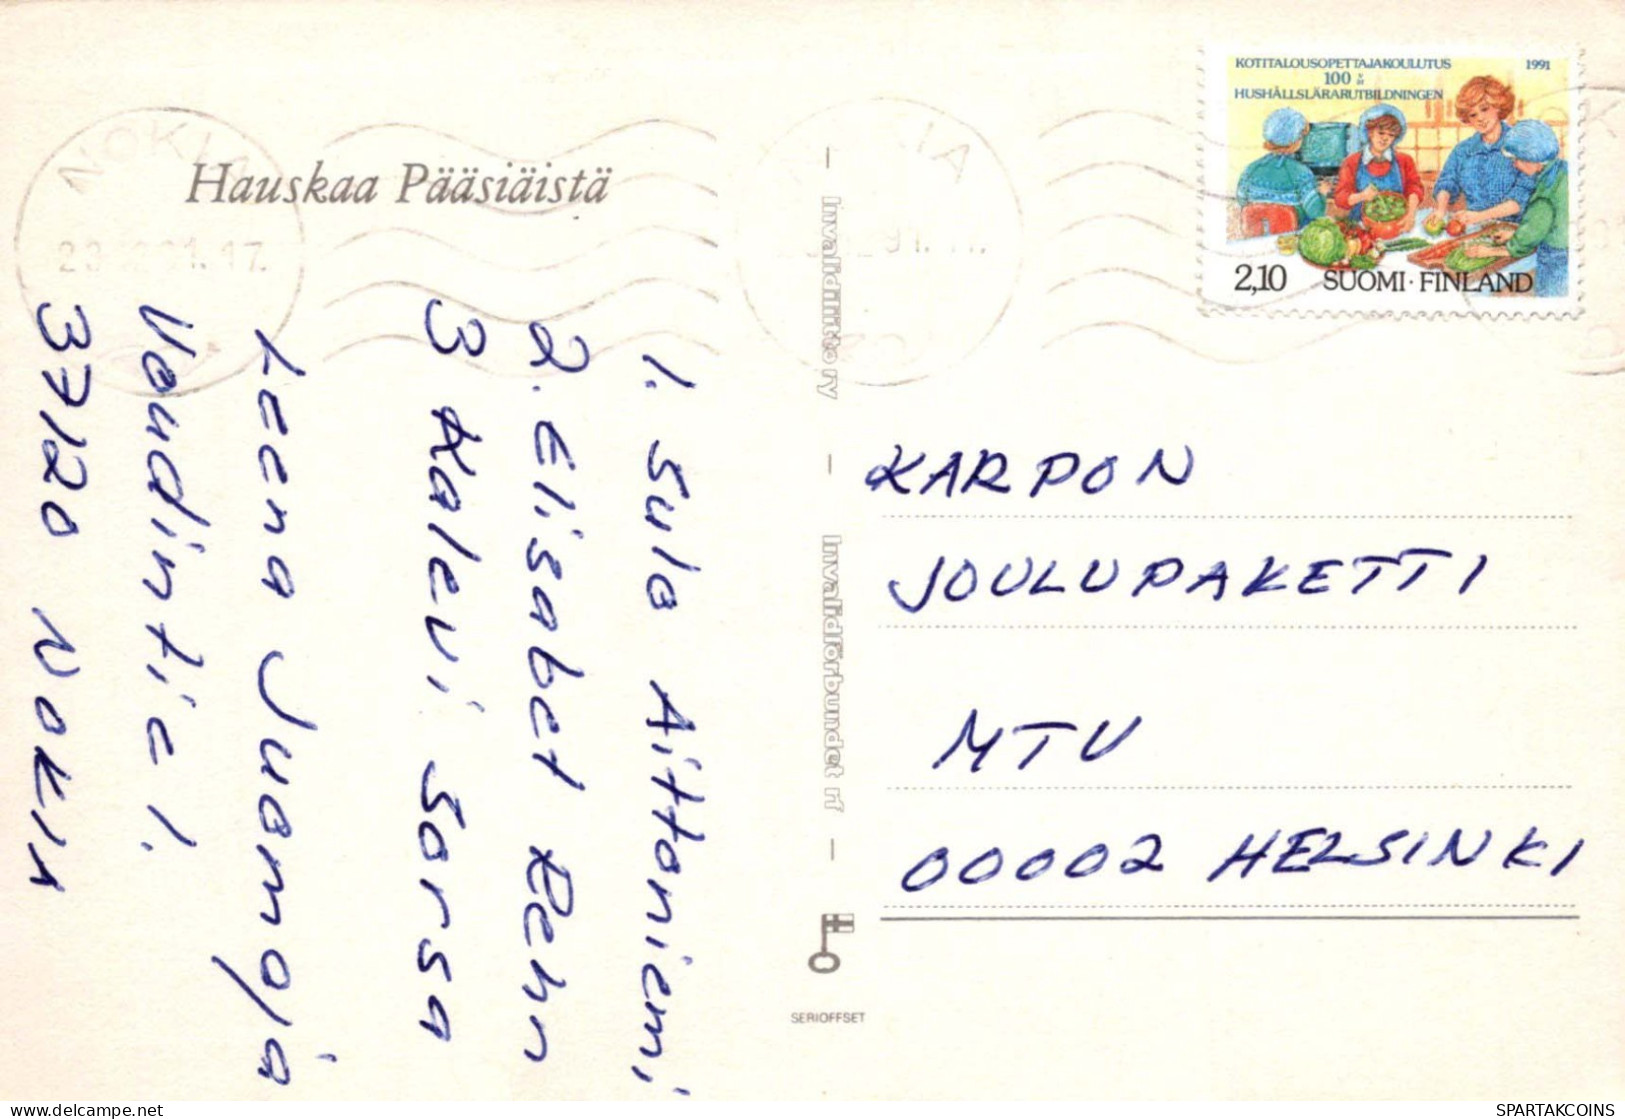 KOTITALOUSOPETTAJAKOULUTUS 1991
100 v år
HUSHÅLLSLÄRARUTBILDNINGEN
2,10 SUOMI·FINLAND
NOKIA
Hauskaa Pääsiäistä
1. Sulo Aittoniemi
2. Elisabet Rehn
3 Kalevi Sorsa
Leena Juamoja
Voudintie 1.
37120 NOKIA
Invalidiliitto ry
Invalidförbundet rf
KARPON
JOULUPAKETTI
MTV
00002 HELSINKI
SERIOFFSET
delcampe.net
SPARTAKCOINS
https://www.SPARTAKCOINS.com